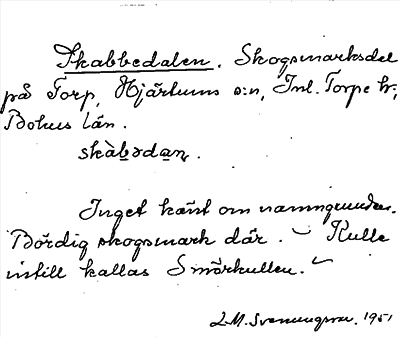 Skabbedalen. Skogsmarksdel
på Torp, Hjärtums s:n, Inl. Torpe hr,
Bohus län.
skàbədaṉ.
Inget känt om namngrunden.
Bördig skogsmark där. Kulle
intill kallas Smörkullen.
1951